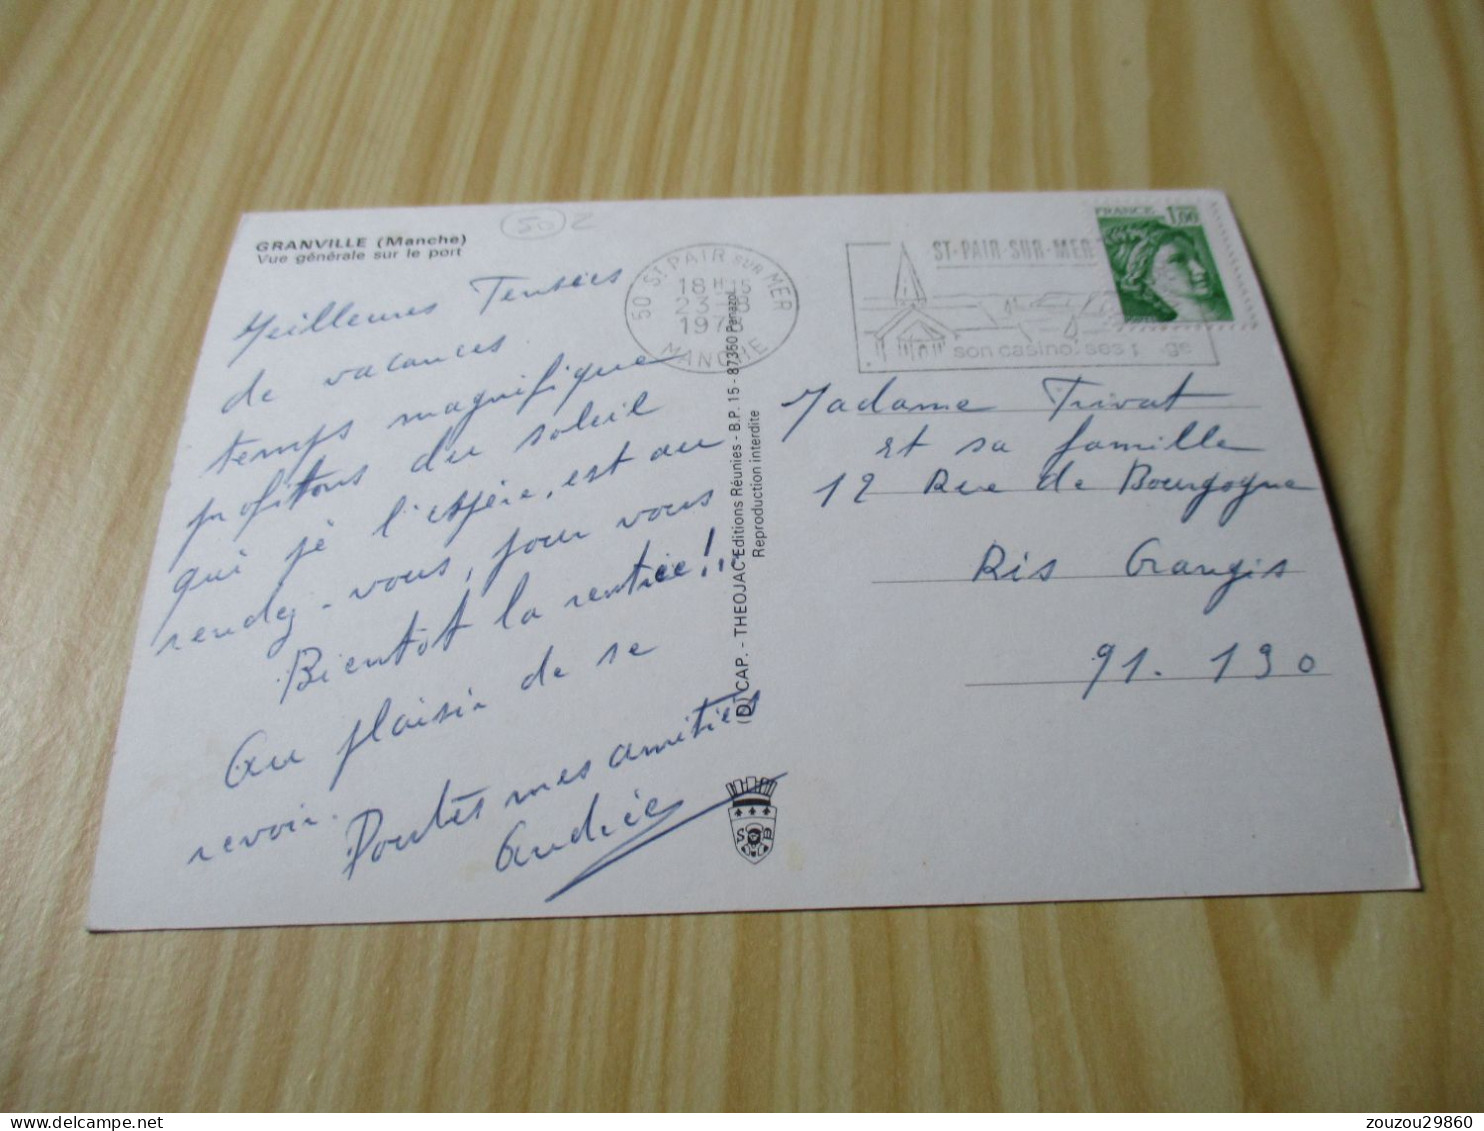 GRANVILLE (Manche)
Vue générale sur le port
50 Z
Meilleures Pensées
de vacances
temps magnifique
profitons du soleil
qui je l'espère, est au
rendez-vous, pour vous
Bientôt la rentrée!!..
Au plaisir de se
revoir.
Toutes mes amitiés
Andrée
50 ST PAIR SUR MER
18 H
23 - 8
197
MANCHE
ST-PAIR-SUR-MER
son casino. ses
FRANCE 1,00
(D) CAP. - THEOJAC Editions Réunies - B.P. 15 - 87360 Panazol
Reproduction interdite
Madame Trivat
et sa famille
12 Rue de Bourgogne
Ris Orangis
91.130
zouzou29860